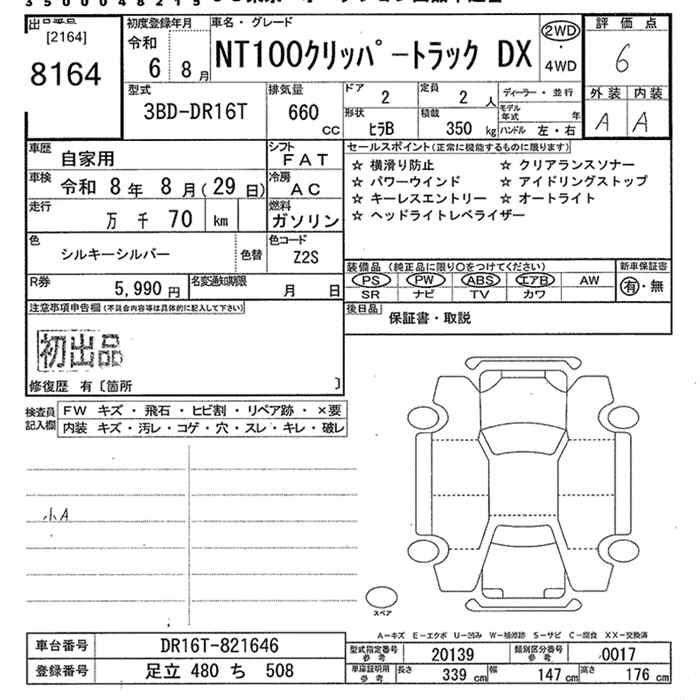 3500048215
出品番号
[2164]
8164
初度登録年月
令和
6 8月
車名・グレード
NT100クリッパートラック DX
2WD
・
4WD
評価点
6
外装 内装
A A
型式
3BD-DR16T
排気量
660
cc
ドア
2
定員
2人
形状
ヒラB
積載
350 kg
ディーラー・並行
モデル年式 年
ハンドル 左・右
車歴
自家用
シフト
FAT
車検
令和 8年 8月(29日)
冷房
AC
走行
万 千 70 km
燃料
ガソリン
色
シルキーシルバー
色替
色コード
Z2S
R券
5,990円
名変通知期限
月 日
セールスポイント(正常に機能するものに限ります)
☆ 横滑り防止 ☆ クリアランスソナー
☆ パワーウインド ☆ アイドリングストップ
☆ キーレスエントリー ☆ オートライト
☆ ヘッドライトレベライザー
装備品(純正品に限り○をつけてください)
PS PW ABS エアB AW
SR ナビ TV カワ
新車保証書
有・無
後日品
保証書・取説
注意事項申告欄(不具合内容等は具体的に記入して下さい)
初出品
修復歴 有〔箇所 〕
検査員記入欄
FW キズ・飛石・ヒビ割・リペア跡・×要
内装 キズ・汚レ・コゲ・穴・スレ・キレ・破レ
小A
スペア
A-キズ E-エクボ U-凹み W-補修跡 S-サビ C-腐食 XX-交換済
車台番号 DR16T-821646
登録番号 足立 480 ち 508
型式指定番号参考 20139
類別区分番号参考 0017
車庫証明用参考 長さ 339 cm 幅 147 cm 高さ 176 cm